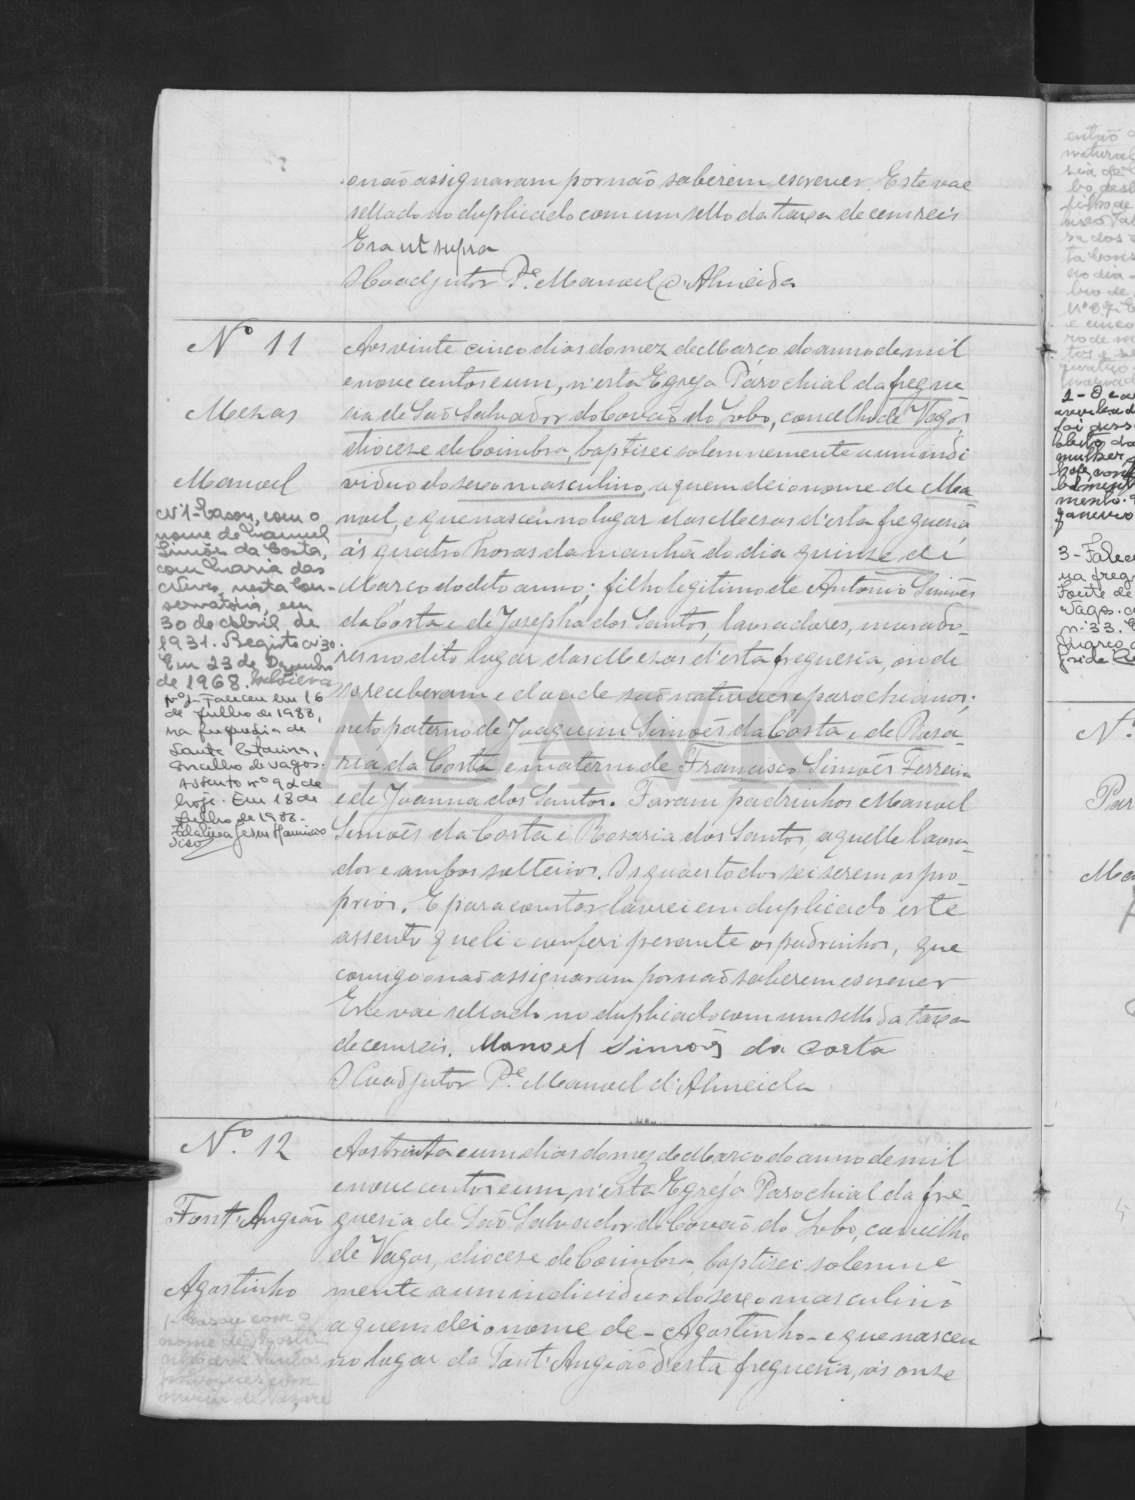 e não assignaram por não saberem escrever. Este vae
sellado no duplicado com um sello da taxa de cem reis
Era ut supra
O Coadjutor P.e Manuel d'Almeida
Nº 11
Mezas
Manuel
Aos vinte cinco dias do mez de Março do anno de mil
e nove centos e um, n'esta Egreja Parochial da fregue
cia de São Salvador do Covão do Lobo, concelho de Vagos
diocese de Coimbra, baptisei solemnemente a um indi
viduo do sexo masculino, a quem dei o nome de Ma
nuel, e que nasceu no lugar das Mezas d'esta freguesia
ás quatro horas da manhã do dia quinze de
Março do dito anno; filho legitimo de Antonio Simões
da Costa e de Josepha dos Santos, lavradores, morado-
res no dito lugar das Mezas d'esta freguesia, onde
se receberam e d'onde são naturaes e parochianos;
neto paterno de Joaquim Simões da Costa e de Rosa-
ria da Costa e materno de Francisco Simões Ferreira
e de Joanna dos Santos. Foram padrinhos Manuel
Simões da Costa e Rosaria dos Santos, aquelle lavra-
dor e ambos solteiros. Os quaes todos sei serem os pro-
prios. E para constar lavrei em duplicado este
assento que li e conferi perante os padrinhos, que
comigo não assignaram por não saberem escrever
Este vae sellado no duplicado com um sello da taxa
de cem reis. Manoel Simões da Costa
O Coadjutor P.e Manuel d'Almeida
Nº 1 - Casou, com o
nome de Manuel
Simões da Costa,
com Maria das
Neves, nesta Con-
servatória, em
30 de Abril de
1931. Registo nº 30.
Em 23 de Dezembro
de 1968.
Nº 2 - Faleceu em 16
de Julho de 1988,
na freguesia de
Santa Catarina,
concelho de Vagos.
Assento nº 92 de
hoje. Em 18 de
Julho de 1988.
ADAVR
N.º 12
Font'Angião
Agostinho
Aos trinta e um dias do mez de Março do anno de mil
e nove centos e um, n'esta Egreja Parochial da fre-
guesia de São Salvador do Covão do Lobo, concelho
de Vagos, diocese de Coimbra, baptisei solemne
mente a um individuo do sexo masculino
a quem dei o nome de - Agostinho - e que nasceu
no lugar da Font'Angião d'esta freguesia, ás onze
1 - Casou com o
nome de
Nº
Par
Ma